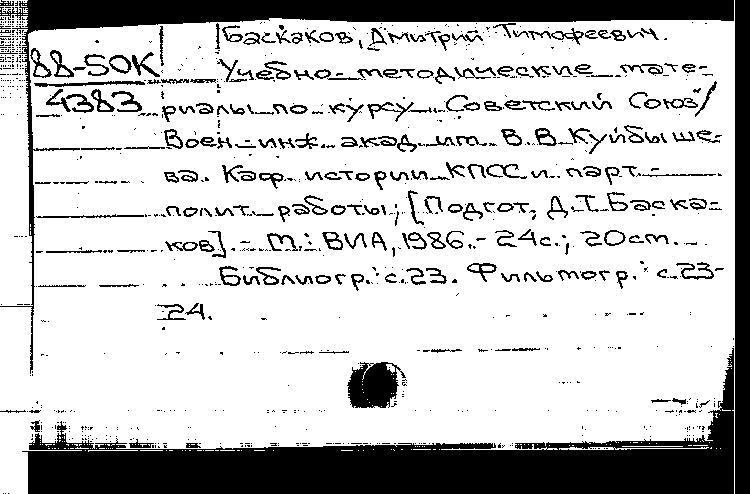 Баскаков, Дмитрий Тимофеевич.
88-50К Учебно-методические мате-
4383 риалы по курсу "Советский Союз"/
Воен.-инж. акад. им. В.В. Куйбыше-
ва. Каф. истории КПСС и парт.-
полит. работы; [Подгот. Д.Т. Баска-
ков]. - М.: ВИА, 1986. - 24с.; 20см.
Библиогр.: с.23. Фильмогр.: с.23-
24.